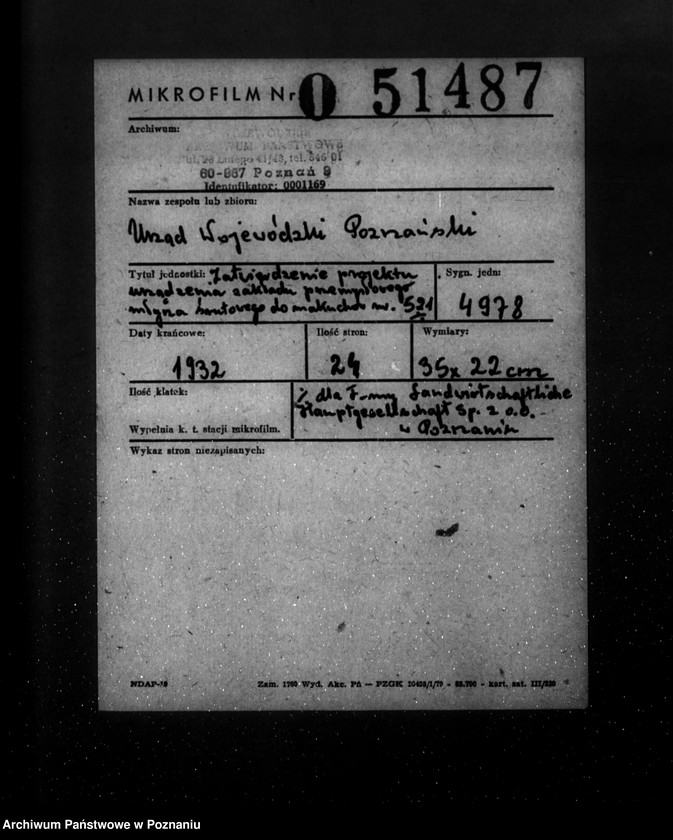 MIKROFILM Nr O 51487
Archiwum:
ul. 23 Lutego 41/43, tel. 546 01
60-967 Poznań 9
Identyfikator: 0001169
Nazwa zespołu lub zbioru:
Urząd Wojewódzki Poznański
Tytuł jednostki: Zatwierdzenie projektu
urządzenia zakładu przemysłowego
młyna śrutowego do makuchów nr. 521
Sygn. jedn:
4978
Daty krańcowe:
1932
Ilość stron:
24
Wymiary:
35x22cm
Ilość klatek:
Wypełnia k. t. stacji mikrofilm.
dla F-my Landwirtschaftliche
Hauptgesellschaft Sp. z o.o.
w Poznaniu
Wykaz stron niezapisanych:
NDAP-
Zam. 1760 Wyd. Akc. Pń — PZGK
Archiwum Państwowe w Poznaniu